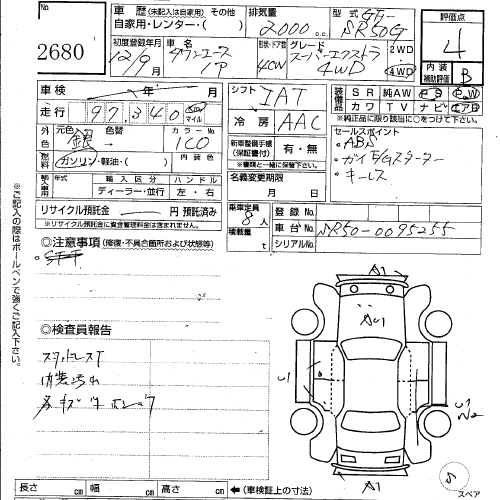 2680
車 歴 (未記入は自家用) その他
自家用・レンタ・( )
排気量
2000 cc
型 式 GF-
SR50G
評価点
4
内装
補助評価 B
初度登録年月
12/9
車 名
タウンエース
形状・ドア数
4CW
グレード
スーパーエクストラ
4WD
2WD
4WD
車検 年 月
走行 97,340 km マイル
シフト
IAT
冷 房 AAC
装備品
SR 純AW PS PW
カワ TV ナビ エアB
※純正品に限り該当に○をつけて下さい。
外色
元色 銀 色替
カラーNo
1C0
燃料
ガソリン・軽油・( )
内装色
新車整備手帳
(保証書付)
有・無
※書類と一緒に保管して下さい。
名義変更期限
月 日
セールスポイント
・ABS
・ガイE/Gスターター
・キーレス
輸入車用
年式
輸入区分
ハンドル
ディーラー・並行
左・右
リサイクル預託金 円 預託済み
※リサイクル預託金に資金管理料金は含まれません。
乗車定員
8 人
積載量
t
登録No.
車台No. SR50-0095255
シリアルNo.
◎注意事項 (修復・不具合箇所および状態等)
◎検査員報告
スタッドレスT
内装汚れ
A1
AU1
U1
U1
A1
S
スペア
長さ cm 幅 cm 高さ cm ←(車検証上の寸法)
◎ご記入の際はボールペンで強くご記入下さい。